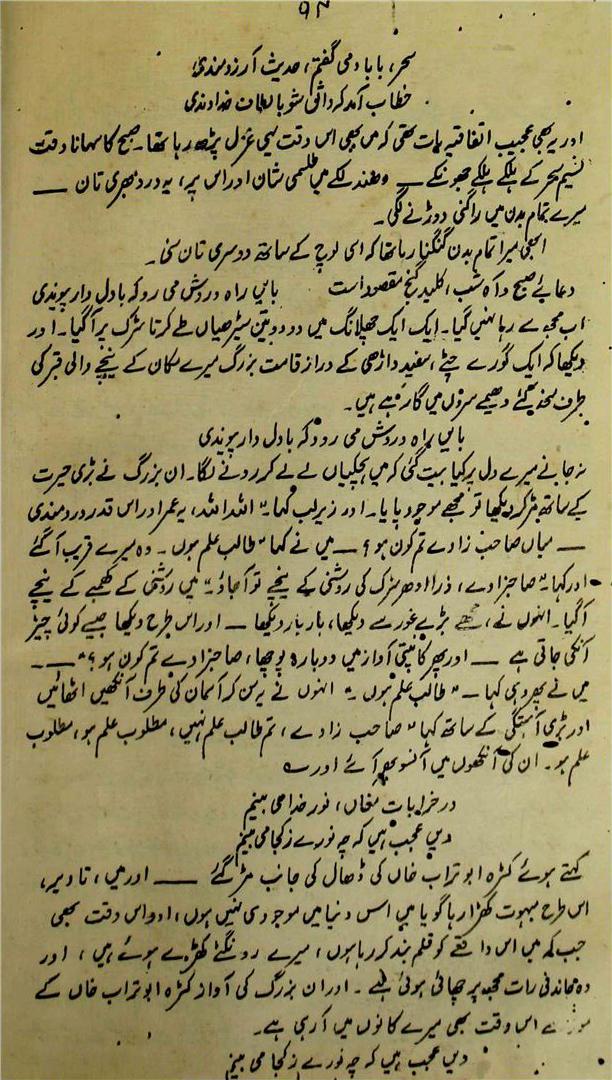 ۹۴
سحر، بابادمی گفتم، حدیث آرزومندی
خطاب آمد کہ داثق شو بالطاف خداوندی
اور یہ بھی عجیب اتفاقیہ بات تھی کہ میں بھی اس وقت یہی غزل پڑھ رہا تھا۔ صبح کا سہانا وقت
نسیم سحر کے ہلکے ہلکے جھونکے — دھندلکے میں طلسمی شان اور اس پر، یہ درد بھری تان —
میرے تمام بدن میں راگنی دوڑنے لگی۔
ابھی میرا تمام بدن گنگنا رہا تھا کہ اسی لوچ کے ساتھ دوسری تان سنی۔
دعائے صبح و آہ شب، کلید گنج مقصود است بایں راہ و روش می رو کہ بادل دار پیوندی
اب مجھ سے رہا نہیں گیا۔ ایک ایک چھلانگ میں دو دو تین سیڑھیاں طے کرتا سڑک پر آ گیا۔ اور
دیکھا کہ ایک گورے چٹے، سفید داڑھی کے دراز قامت بزرگ میرے مکان کے نیچے والی قبر کی
طرف منھ کیے دھیمے سروں میں گا رہے ہیں۔
بایں راہ و روش می رو کہ بادل دار پیوندی
نہ جانے میرے دل پر کیا بیت گئی کہ میں ہچکیاں لے لے کر رونے لگا۔ ان بزرگ نے بڑی حیرت
کے ساتھ مڑ کر دیکھا تو مجھے موجود پایا۔ اور زیر لب کہا۔ "اللہ اللہ، یہ عمر اور اس قدر دردمندی
— میاں صاحب زادے تم کون ہو؟ — میں نے کہا "طالب علم ہوں۔ وہ میرے قریب آ گئے
اور کہا۔ "صاحبزادے، ذرا ادھر سڑک کی روشنی کے نیچے تو آ جاؤ۔" میں روشنی کے کھمبے کے نیچے
آ گیا۔ انھوں نے، مجھے بڑے غور سے دیکھا، بار بار دیکھا — اور اس طرح دیکھا جیسے کوئی چیز
آنکی جاتی ہے — اور پھر کانپتی آواز میں دوبارہ پوچھا، صاحبزادے تم کون ہو؟" —
میں نے پھر وہی کہا — "طالب علم ہوں۔" انھوں نے یہ سن کر آسمان کی طرف آنکھیں اٹھائیں
اور بڑی آہستگی کے ساتھ کہا "صاحب زادے، تم طالب علم نہیں، مطلوب علم ہو، مطلوب
علم ہو۔ ان کی آنکھوں میں آنسو بھر آئے اور ــہ
در خراباتِ مغاں، نور خدا می بینم
دیں عجب بیں کہ چہ نورے ز کجا می بینم
کہتے ہوئے کٹرہ ابو تراب خاں کی ڈھال کی جانب مڑ گئے — اور میں، تا دیر،
اس طرح مبہوت کھڑا رہا گویا میں اس دنیا میں موجود ہی نہیں ہوں، اور اس وقت بھی
جب کہ میں اس واقعے کو قلم بند کر رہا ہوں، میرے رونگٹے کھڑے ہوئے ہیں، اور
وہ چاندنی رات مجھ پر چھائی ہوئی ہے۔ اور ان بزرگ کی آواز کٹرہ ابو تراب خاں کے
سے اس وقت بھی میرے کانوں میں آ رہی ہے۔
دیں عجب بیں کہ چہ نورے ز کجا می بینم